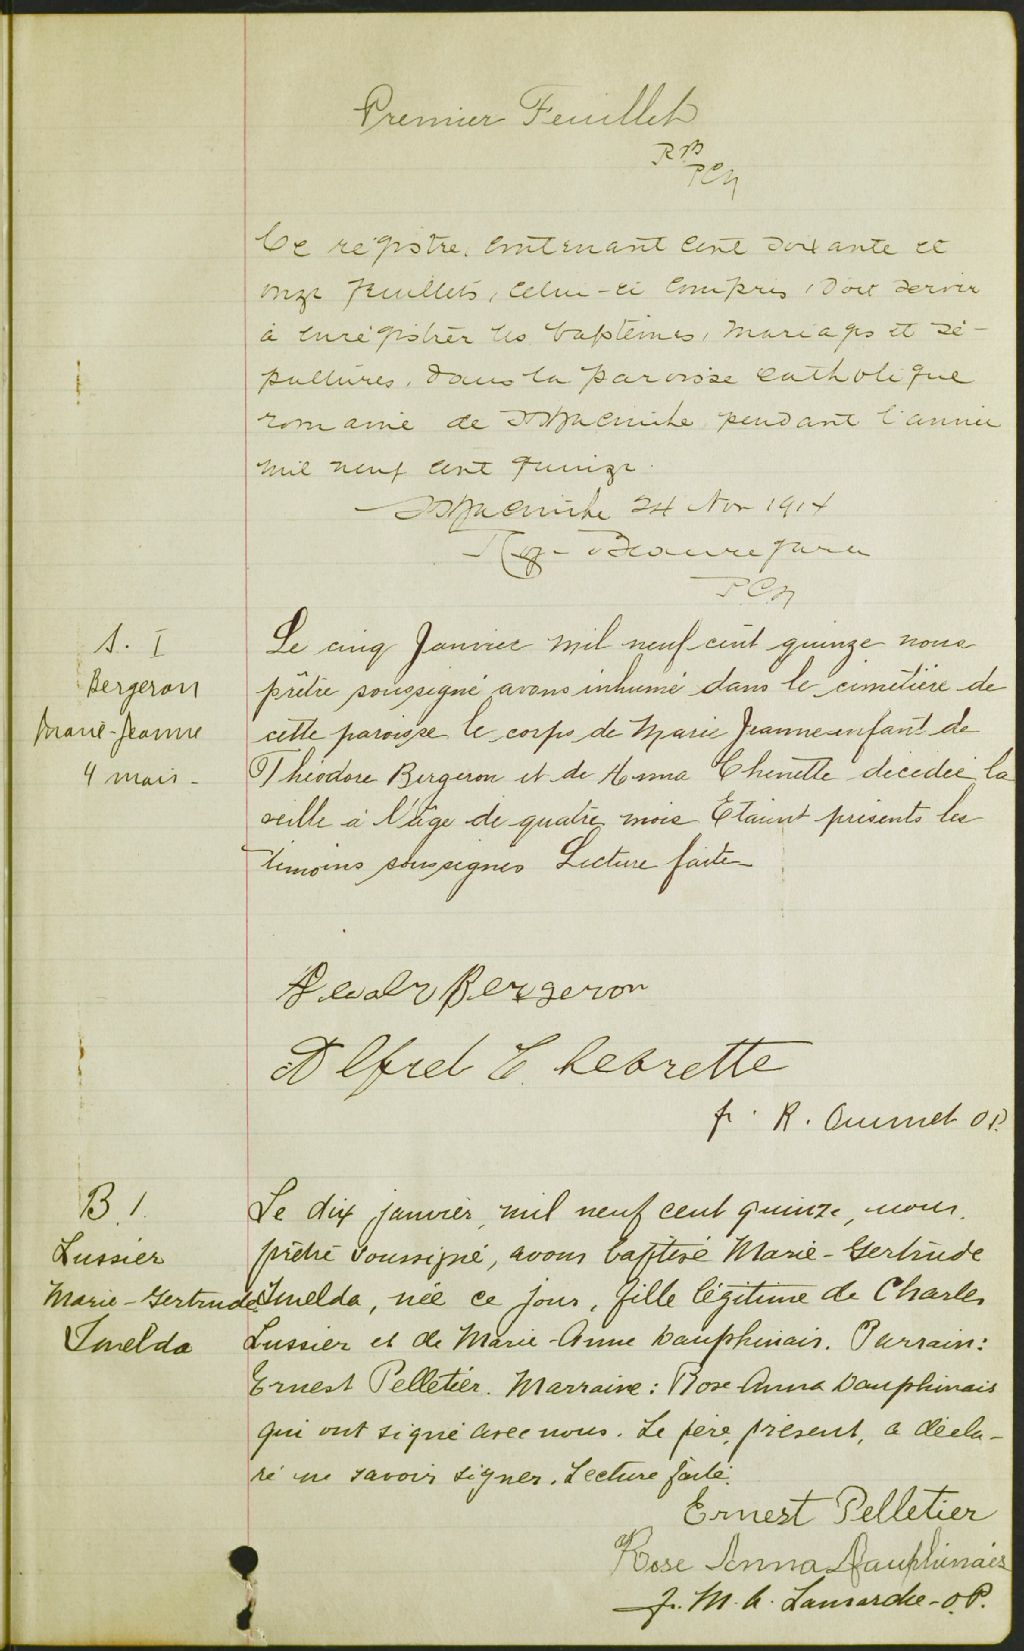 Premier Feuillet
RB
PCS
Ce régistre, contenant cent soixante et
onze feuillets, celui-ci compris, doit servir
à enrégistrer les baptêmes, mariages et sé-
pultures, dans la paroisse catholique
romaine de St Hyacinthe pendant l'année
mil neuf cent quinze.
St Hyacinthe 24 Nov 1914
Beauregard
PCS
S. I
Bergeron
Marie-Jeanne
4 mois-
Le cinq Janvier mil neuf cent quinze nous
prêtre soussigné avons inhumé dans le cimetière de
cette paroisse le corps de Marie Jeanne enfant de
Théodore Bergeron et de Anna Chenette décedée la
veille à l'âge de quatre mois Etaient présents les
témoins soussignés Lecture faite
Bergeron
Alfred Chebrette
fr. R. Ouimet O.P.
B. 1.
Lussier
Marie-Gertrude
Imelda
Le dix janvier, mil neuf cent quinze, nous,
prêtre soussigné, avons baptisé Marie-Gertrude
Imelda, née ce jour, fille légitime de Charles
Lussier et de Marie-Anne Dauphinais. Parrain:
Ernest Pelletier. Marraine: Rose-Anna Dauphinais
qui ont signé avec nous. Le père, présent, a décla-
ré ne savoir signer. Lecture faite.
Ernest Pelletier
Rose Anna Dauphinais
fr. M. A. Lamarche-O.P.